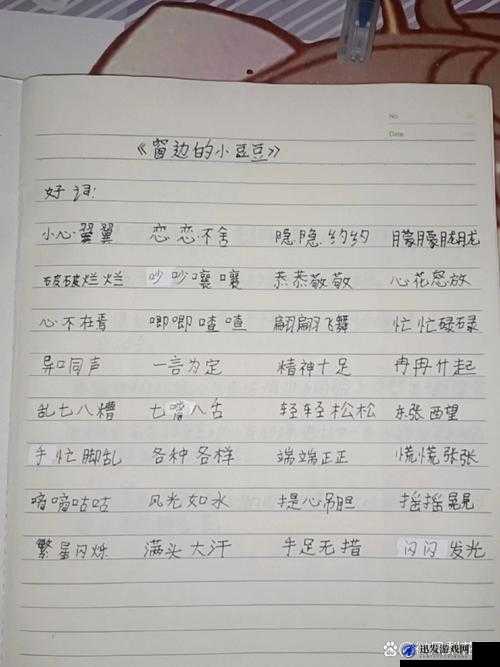 No
Date
《窗边的小豆豆》
好词:
小心翼翼 恋恋不舍 隐隐约约 朦朦胧胧
破破烂烂 吵吵嚷嚷 恭恭敬敬 心花怒放
心不在焉 唧唧喳喳 翩翩飞舞 忙忙碌碌
异口同声 一言为定 精神十足 冉冉升起
乱七八糟 七嘴八舌 轻轻松松 东张西望
手忙脚乱 各种各样 端端正正 慌慌张张
嘀嘀咕咕 风光如水 提心吊胆 摇摇晃晃
繁星闪烁 满头大汗 手足无措 闪闪发光
迅发游戏网